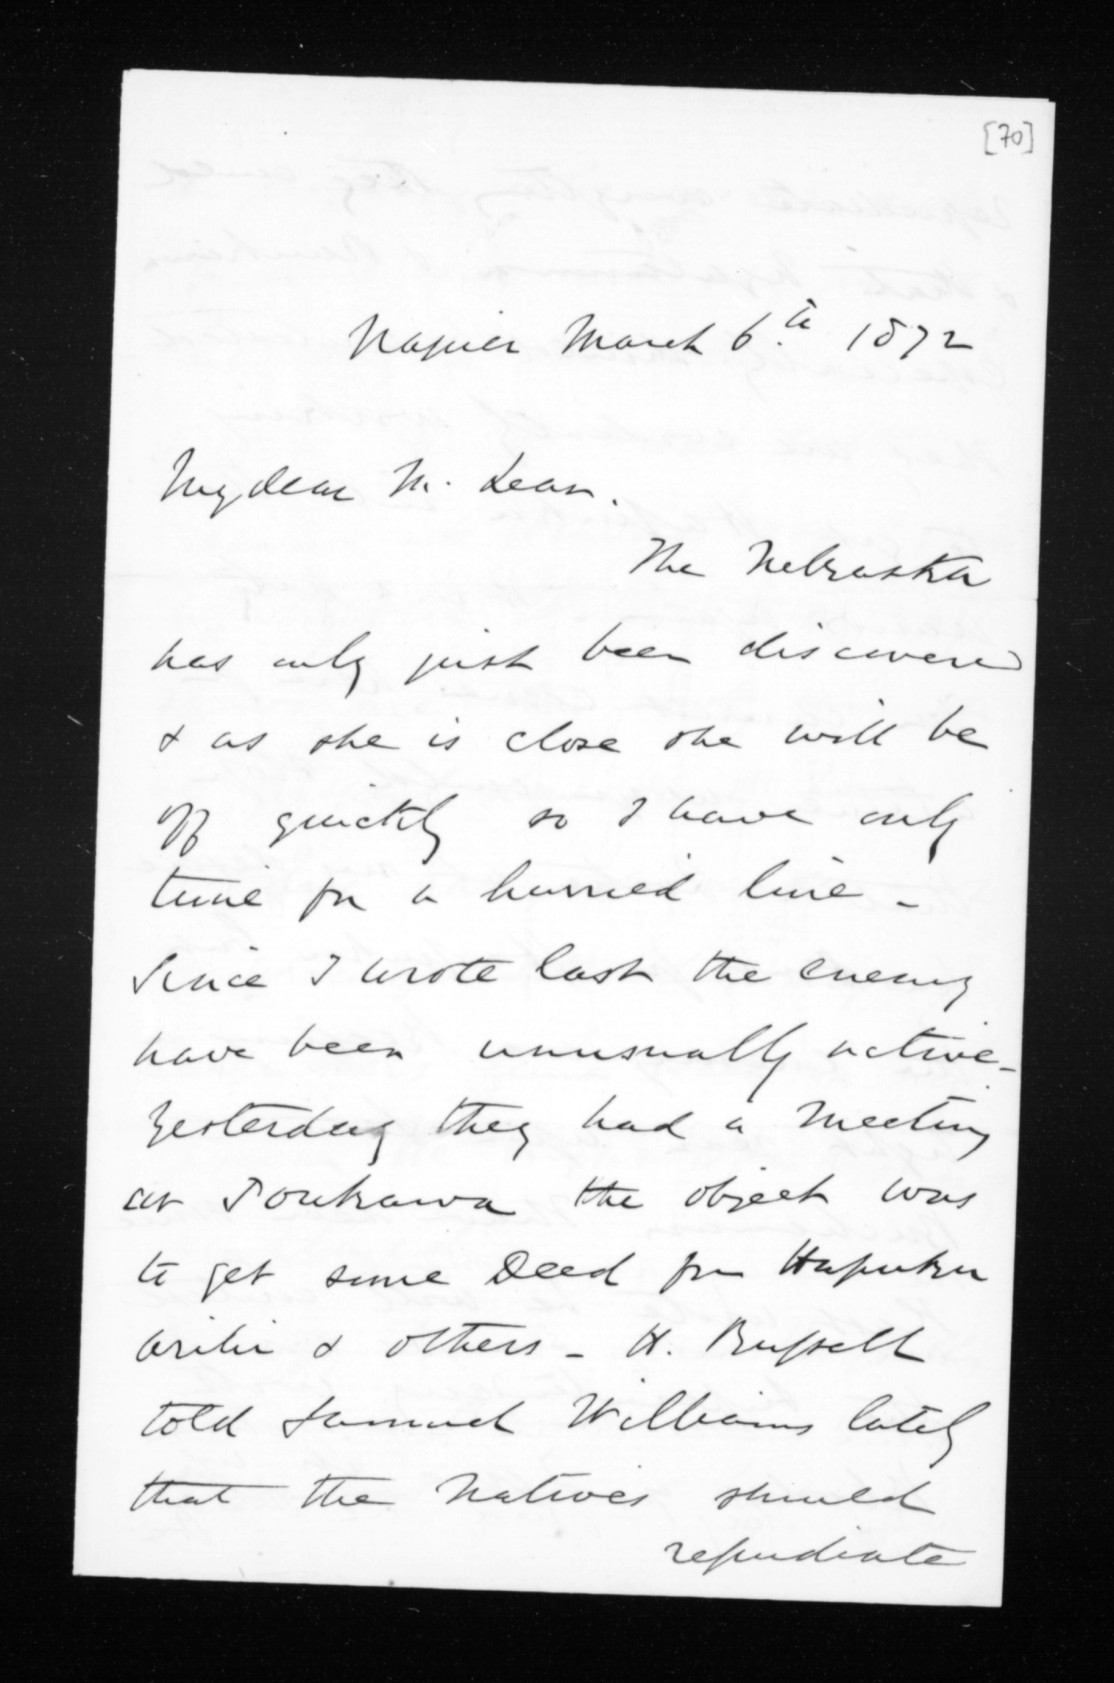 [70]
Napier March 6.th 1872
My dear McLean.
The Nebraska
has only just been discovered
& as she is close she will be
off quickly so I have only
time for a hurried line -
Since I wrote last the enemy
have been unusually active -
Yesterday they had a Meeting
at the object was
to get some Deed from Hapuku
& others - H. Russell
told Samuel Williams lately
that the Natives should
repudiate